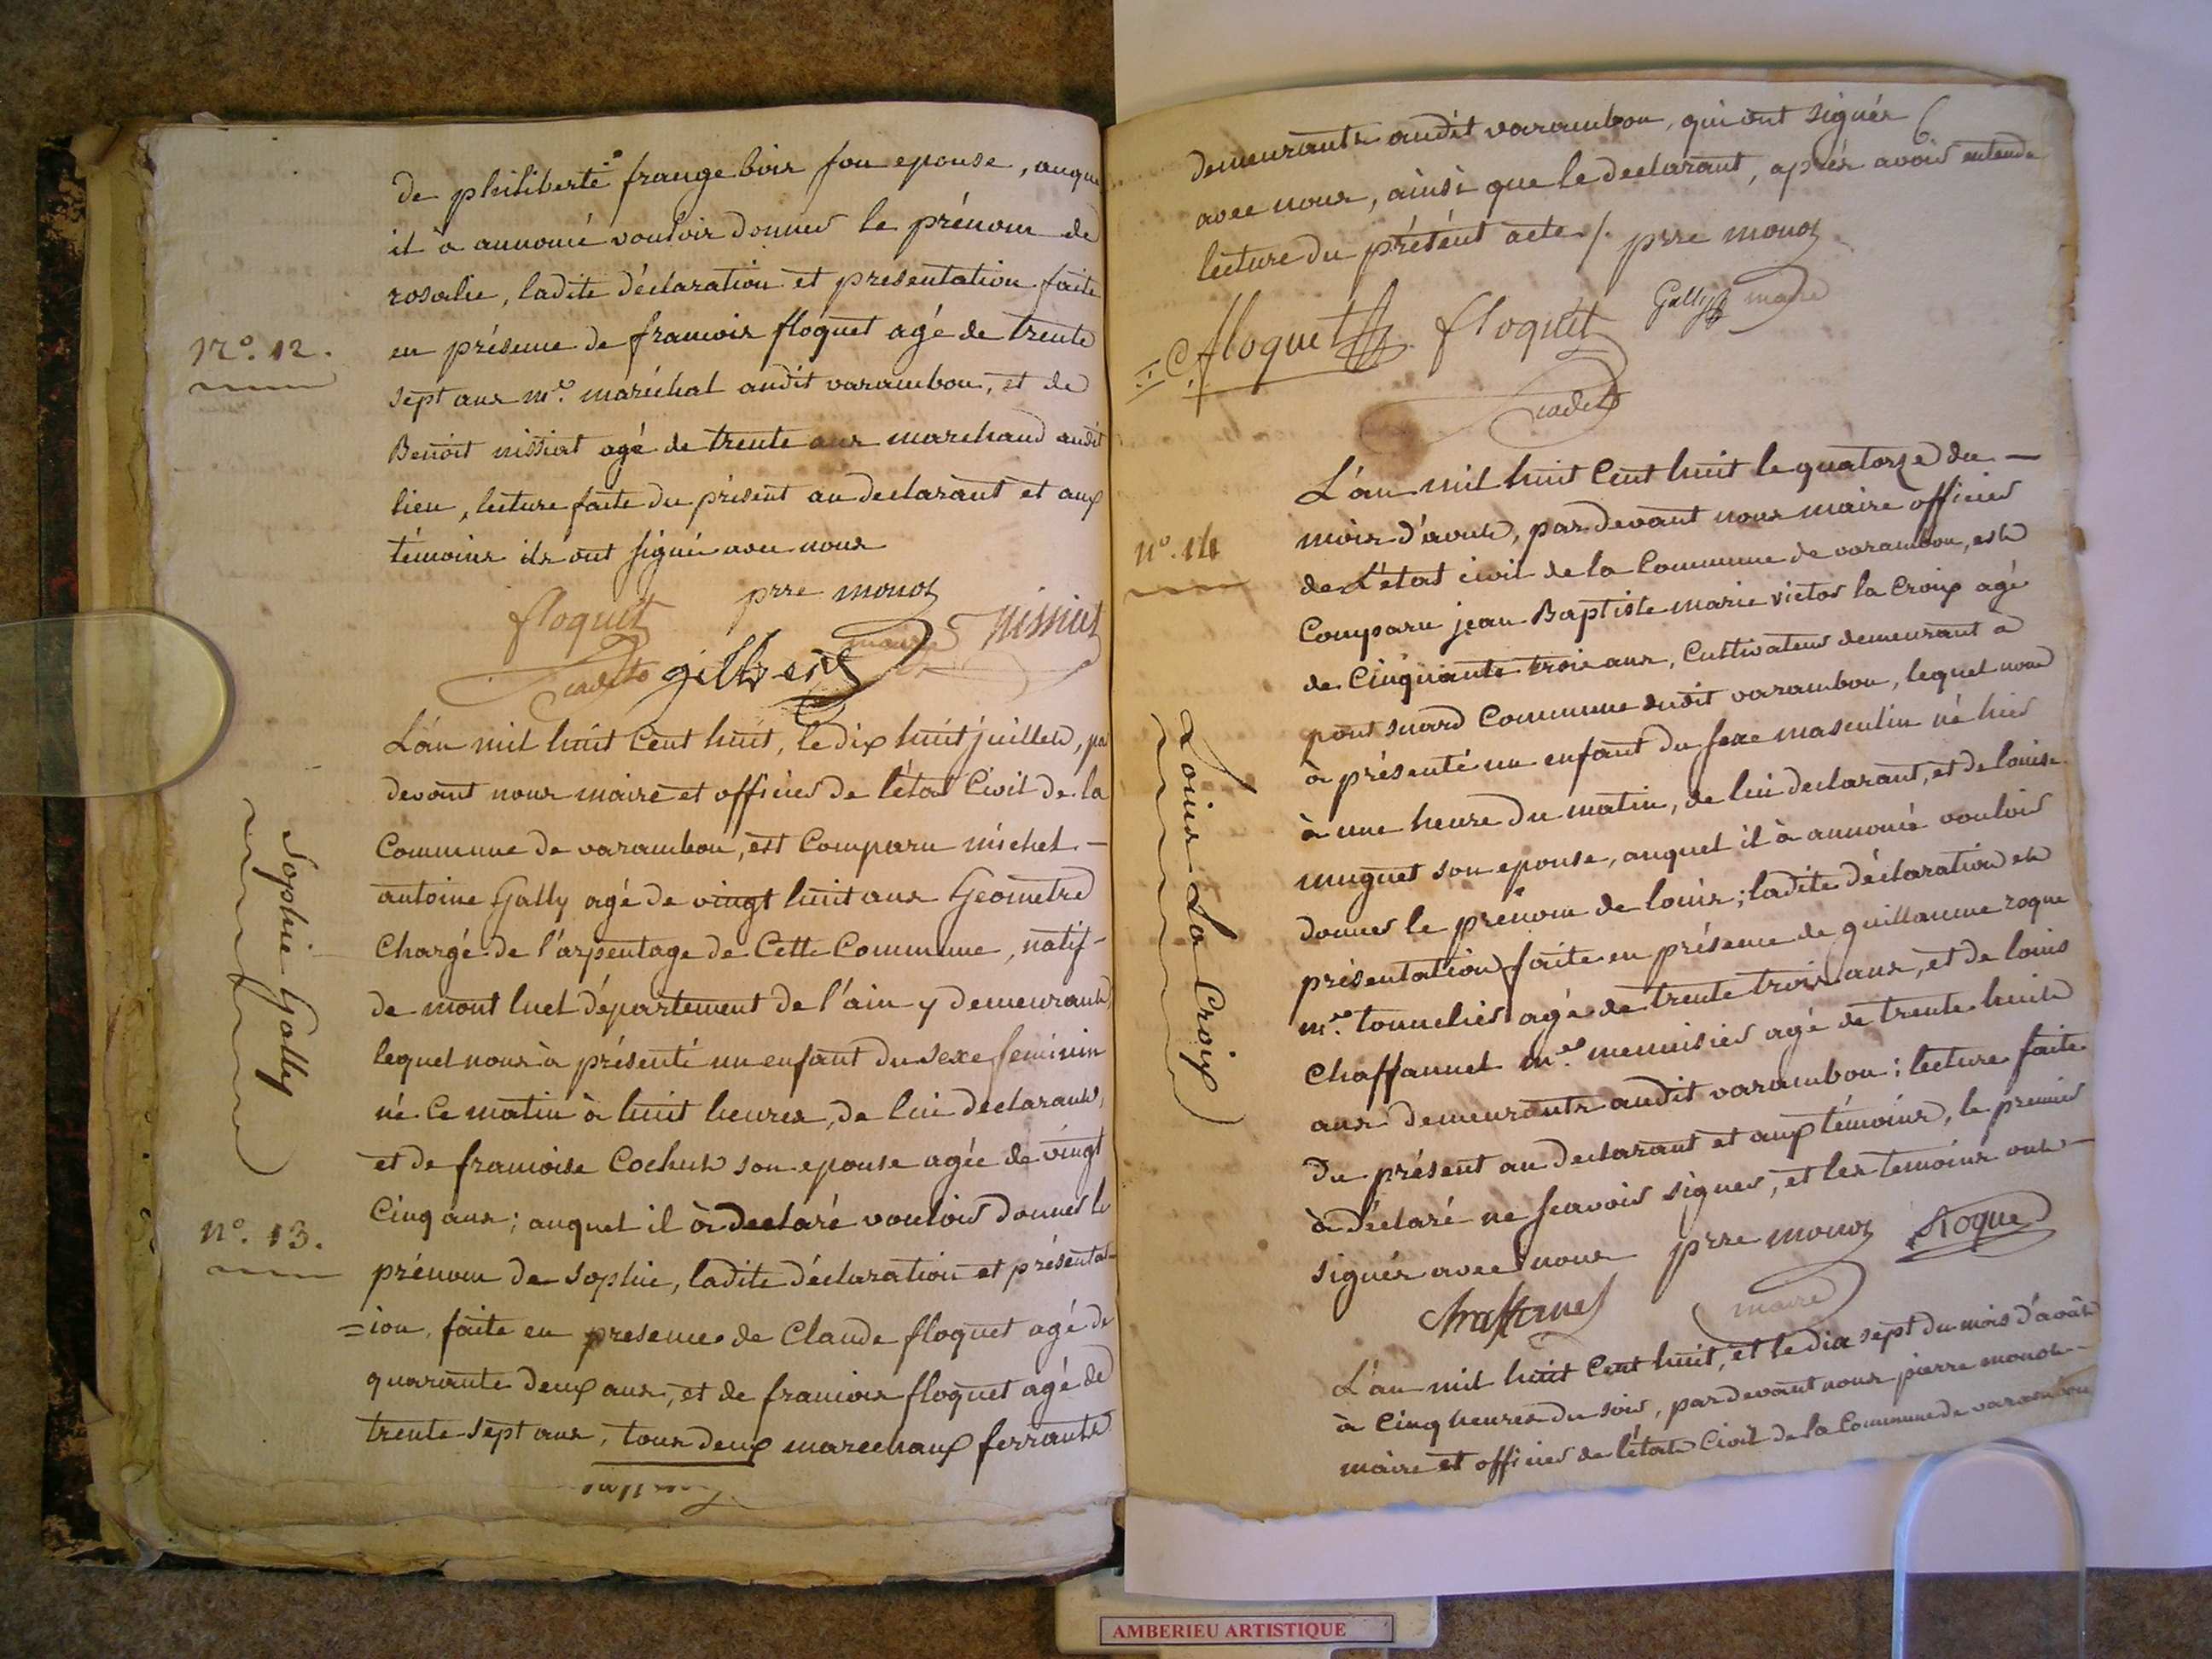 de philiberte frangebois son epouse, auque
il a annoncé vouloir donner le prénom de
rosalie, ladite déclaration et presentation faite
N.º 12.
en présence de francois floquet agé de trente
sept ans m.e maréchal audit varambon, et de
Benoit nissiat agé de trente ans marchand audit
lieu, lecture faite du présent au declarant et aux
témoins ils ont signé avec nous
floquet cadet
prre monoz maire
gilbert
L'an mil huit Cent huit, le dix huit juillet, pa
devant nous maire et officier de l'état Civil de la
Commune de varambon, est Comparu michel
antoine Gally agé de vingt huit ans Geometre
Chargé de l'arpentage de Cette Commune, natif
de mont luel département de l'ain y demeurant,
lequel nous à présenté un enfant du sexe feminin
né Ce matin à huit heures, de lui declarant,
et de francoise Cochet son epouse agée de vingt
Cinq ans; auquel il à declaré vouloir donner le
Sophie Gally
nº. 13.
prénom de Sophie, ladite déclaration et présentat
=ion, faite en presence de Claude floquet agé de
quarante deux ans, et de francois floquet agé de
trente-sept ans, tous deux marechaux ferrants
6
demeurants audit varambon, qui ont signés
avec nous, ainsi que le declarant, après avoir entendu
lecture du présent acte /. prre monoz
maire
C floquet floquet Gally
cadet
L'an mil huit Cent huit le quatorze du
nº. 14
mois d'août, par devant nous maire officier
de L'état civil de la Commune de varambon, est
Comparu jean Baptiste marie victor la Croix agé
de Cinquante trois ans, Cultivateur demeurant a
pont suard Commune dudit varambon, lequel nous
à présenté un enfant du sexe masculin né hier
à une heure du matin, de lui declarant, et de louise
muguet son epouse, auquel il à annoncé vouloir
donner le prénom de louis; ladite déclaration et
présentation faite en présence de guillaume roque
m.e tonnelier agé de trente trois ans, et de louis
Chaffannel m.e menuisier agé de trente huit
ans demeurants audit varambon; lecture faite
du présent au declarant et aux témoins, le premier
à déclaré ne scavoir signer, et les temoins ont
signés avec nous prre monoz Roque
maire
Louis La Croix
L'an mil huit Cent huit, et le dix sept du mois d'août
à Cinq heures du soir, par devant nous pierre monoz
maire et officier de l'état Civil de la Commune de varambon
AMBERIEU ARTISTIQUE